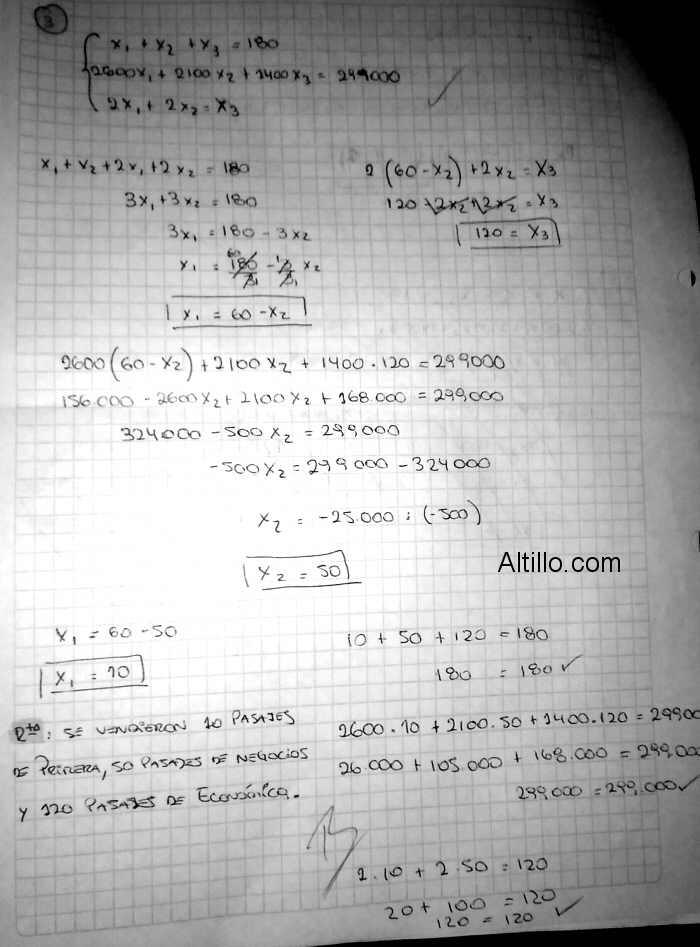 3
x₁ + x₂ + x₃ = 180
2600x₁ + 2100x₂ + 1400x₃ = 299000
2x₁ + 2x₂ = x₃
x₁ + x₂ + 2x₁ + 2x₂ = 180
3x₁ + 3x₂ = 180
3x₁ = 180 - 3x₂
x₁ = 180/3 - 3/3 x₂
x₁ = 60 - x₂
2(60 - x₂) + 2x₂ = x₃
120 - 2x₂ + 2x₂ = x₃
120 = x₃
2600(60 - x₂) + 2100x₂ + 1400 . 120 = 299000
156.000 - 2600x₂ + 2100x₂ + 168.000 = 299,000
324000 - 500x₂ = 299,000
-500x₂ = 299000 - 324000
x₂ = -25.000 : (-500)
x₂ = 50
Altillo.com
x₁ = 60 - 50
x₁ = 10
10 + 50 + 120 = 180
180 = 180 ✓
Rta: SE VENDIERON 10 PASAJES
DE PRIMERA, 50 PASAJES DE NEGOCIOS
Y 120 PASAJES DE ECONÓMICA.
2600 . 10 + 2100 . 50 + 1400 . 120 = 29900
26.000 + 105.000 + 168.000 = 299,000
299,000 = 299,000 ✓
2 . 10 + 2 . 50 = 120
20 + 100 = 120
120 = 120 ✓